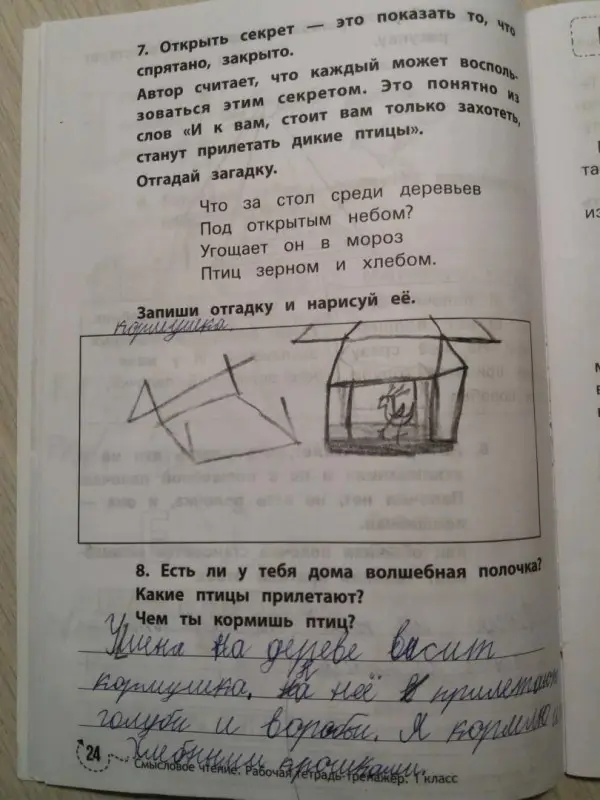 7. Открыть секрет — это показать то, что
спрятано, закрыто.
Автор считает, что каждый может восполь-
зоваться этим секретом. Это понятно из
слов «И к вам, стоит вам только захотеть,
станут прилетать дикие птицы».
Отгадай загадку.
Что за стол среди деревьев
Под открытым небом?
Угощает он в мороз
Птиц зерном и хлебом.
Запиши отгадку и нарисуй её.
кормушка.
8. Есть ли у тебя дома волшебная полочка?
Какие птицы прилетают?
Чем ты кормишь птиц?
на дереве висит
кормушка. на неё прилетают
голуби и воробьи. Я кормлю их
хлебными крошками.
24
Смысловое чтение. Рабочая тетрадь-тренажер. 1 класс